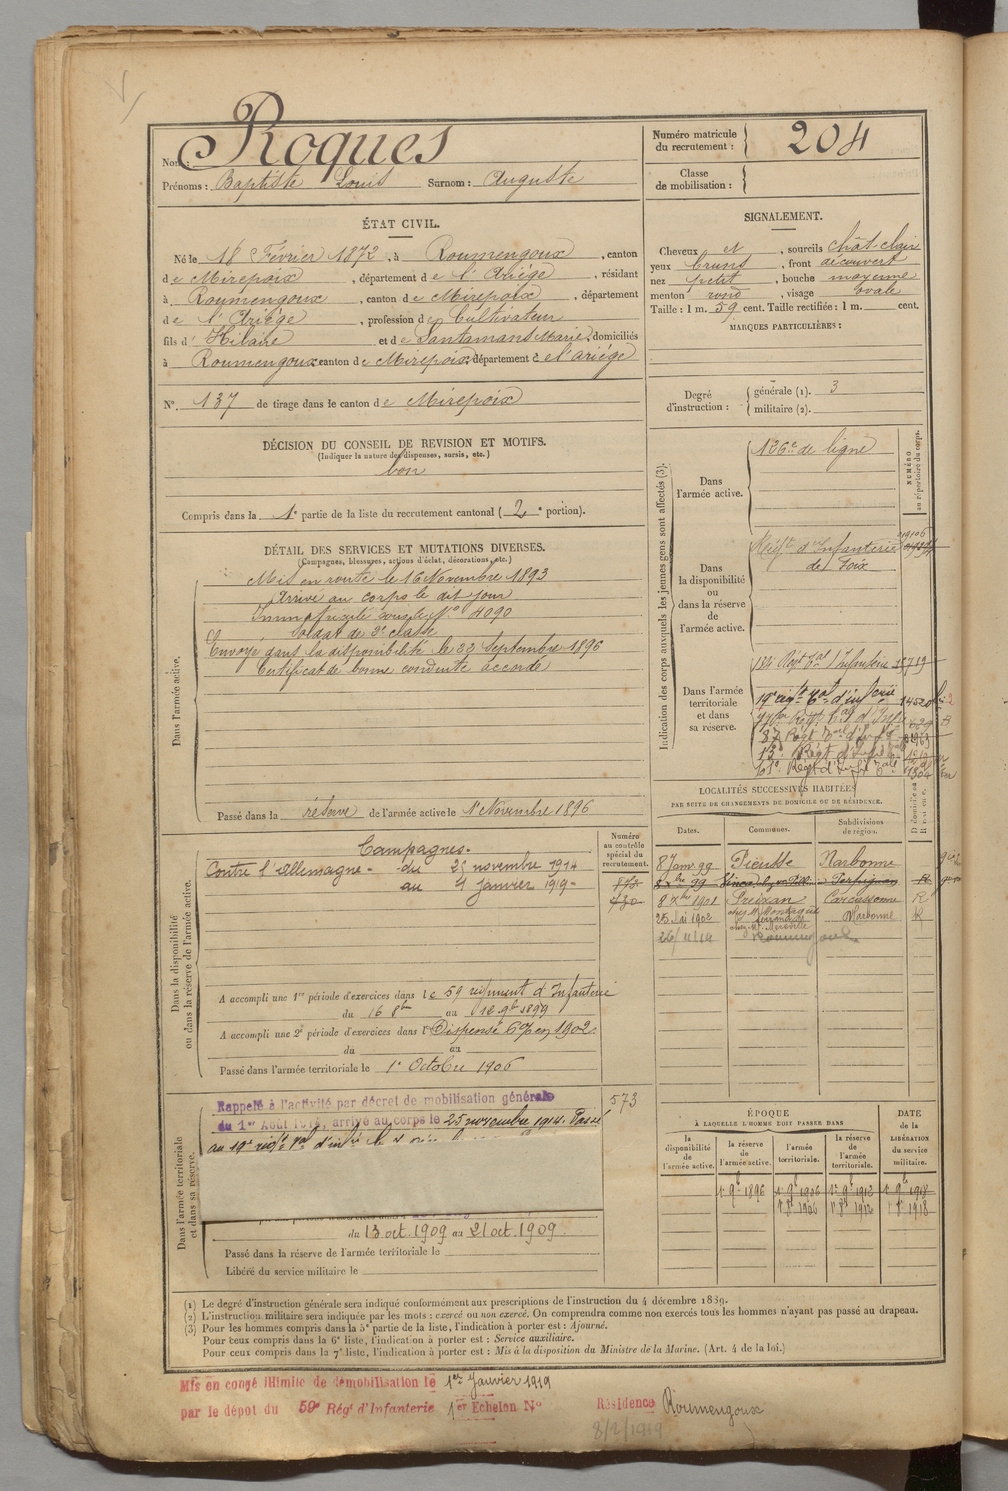 Nom : Roques
Prénoms : Baptiste Louis Surnom : Auguste
Numéro matricule du recrutement : 204
Classe de mobilisation :
ÉTAT CIVIL.
Né le 18 Février 1872, à Roumengoux, canton
de Mirepoix, département de l'Ariége, résidant
à Roumengoux, canton de Mirepoix, département
de l'Ariége, profession de Cultivateur
fils d' Hilaire et de Santamans Marie, domiciliés
à Roumengoux canton de Mirepoix, département de l'ariége
N° 137 de tirage dans le canton de Mirepoix
DÉCISION DU CONSEIL DE REVISION ET MOTIFS.
(Indiquer la nature des dispenses, sursis, etc.)
bon
Compris dans la 1e partie de la liste du recrutement cantonal (2e portion).
SIGNALEMENT.
Cheveux et, sourcils chât-clair
yeux bruns, front découvert
nez petit, bouche moyenne
menton rond, visage ovale
Taille : 1 m. 59 cent. Taille rectifiée : 1 m. cent.
MARQUES PARTICULIÈRES :
Degré d'instruction : générale (1). 3
militaire (2).
DÉTAIL DES SERVICES ET MUTATIONS DIVERSES.
(Campagnes, blessures, actions d'éclat, décorations, etc.)
Dans l'armée active.
Mis en route le 16 Novembre 1893
Arrivé au corps le dit jour
Immatriculé sous le N° 4090
Soldat de 2e classe
Envoyé dans la disponibilité le 22 Septembre 1896
Certificat de bonne conduite accordé
Passé dans la réserve de l'armée active le 1er Novembre 1896
Indication des corps auxquels les jeunes gens sont affectés (3).
NUMÉRO au répertoire du corps.
Dans l'armée active.
136e de ligne
Dans la disponibilité ou dans la réserve de l'armée active.
Régt d'Infanterie
de Foix
Dans l'armée territoriale et dans sa réserve.
19e régt tal d'infterie
LOCALITÉS SUCCESSIVES HABITÉES
PAR SUITE DE CHANGEMENTS DE DOMICILE OU DE RÉSIDENCE.
Dates. Communes. Subdivisions de région.
8 Janv 99 Pieusse Narbonne
8 Xbre 1901 Preixan Carcassonne R
25 Mai 1902 Narbonne R
Dans la disponibilité ou dans la réserve de l'armée active.
Numéro au contrôle spécial du recrutement.
Campagnes.
Contre l'Allemagne - du 25 novembre 1914
au 1 Janvier 1919 -
A accompli une 1re période d'exercices dans le 59 régiment d'Infanterie
du 16 8bre au 12 9bre 1899
A accompli une 2e période d'exercices dans l Dispensé 6% en 1902.
du au
Passé dans l'armée territoriale le 1er Octobre 1906
573
Dans l'armée territoriale et dans sa réserve.
Rappelé à l'activité par décret de mobilisation générale
du 1er Août 1914, arrivé au corps le 25 novembre 1914. Passé
du 13 oct. 1909 au 21 oct. 1909.
Passé dans la réserve de l'armée territoriale le
Libéré du service militaire le
ÉPOQUE
À LAQUELLE L'HOMME DOIT PASSER DANS
DATE de la LIBÉRATION du service militaire.
la disponibilité de l'armée active.
la réserve de l'armée active.
l'armée territoriale.
la réserve de l'armée territoriale.
1er 9b 1896 1er 9b 1906 1er 9b 1912 1er 9b 1918
1er 8b 1906 1er 8b 1912 1er 8b 1918
(1) Le degré d'instruction générale sera indiqué conformément aux prescriptions de l'instruction du 4 décembre 1889.
(2) L'instruction militaire sera indiquée par les mots : exercé ou non exercé. On comprendra comme non exercés tous les hommes n'ayant pas passé au drapeau.
(3) Pour les hommes compris dans la 5e partie de la liste, l'indication à porter est : Ajourné.
Pour ceux compris dans la 6e liste, l'indication à porter est : Service auxiliaire.
Pour ceux compris dans la 7e liste, l'indication à porter est : Mis à la disposition du Ministre de la Marine. (Art. 4 de la loi.)
Mis en congé illimité de démobilisation le 1er Janvier 1919
par le dépôt du 59e Régt d'Infanterie 1er Echelon N° Résidence Roumengoux
8/2/1919